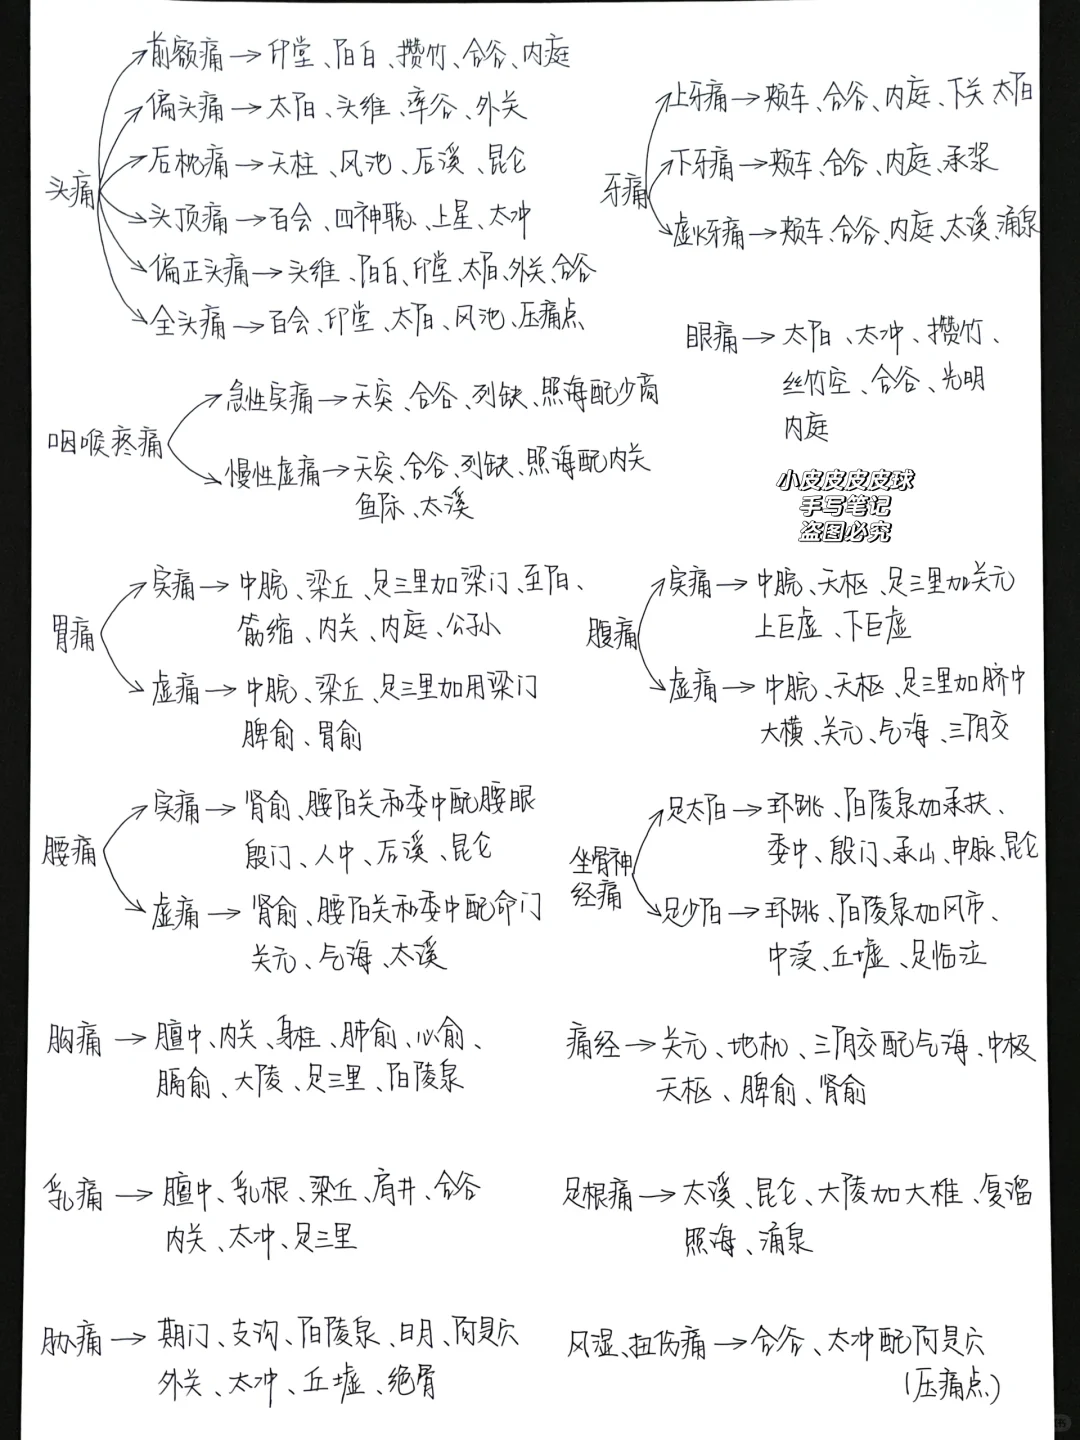 头痛
前额痛→印堂、阳白、攒竹、合谷、内庭
偏头痛→太阳、头维、率谷、外关
后枕痛→天柱、风池、后溪、昆仑
头顶痛→百会、四神聪、上星、太冲
偏正头痛→头维、阳白、印堂、太阳、外关、合谷
全头痛→百会、印堂、太阳、风池、压痛点
牙痛
上牙痛→颊车、合谷、内庭、下关 太阳
下牙痛→颊车、合谷、内庭、承浆
虚火牙痛→颊车、合谷、内庭、太溪、涌泉
眼痛→太阳、太冲、攒竹、
丝竹空、合谷、光明
内庭
咽喉疼痛
急性实痛→天突、合谷、列缺、照海配少商
慢性虚痛→天突、合谷、列缺、照海配内关
鱼际、太溪
小皮皮皮皮球
手写笔记
盗图必究
胃痛
实痛→中脘、梁丘、足三里加梁门、至阳、
筋缩、内关、内庭、公孙
虚痛→中脘、梁丘、足三里加用梁门
脾俞、胃俞
腹痛
实痛→中脘、天枢、足三里加关元
上巨虚、下巨虚
虚痛→中脘、天枢、足三里加脐中
大横、关元、气海、三阴交
腰痛
实痛→肾俞、腰阳关和委中配腰眼
殷门、人中、后溪、昆仑
虚痛→肾俞、腰阳关和委中配命门
关元、气海、太溪
坐骨神
经痛
足太阳→环跳、阳陵泉加承扶、
委中、殷门、承山、申脉、昆仑
足少阳→环跳、阳陵泉加风市、
中渎、丘墟、足临泣
胸痛→膻中、内关、身柱、肺俞、心俞、
膈俞、大陵、足三里、阳陵泉
痛经→关元、地机、三阴交配气海、中极
天枢、脾俞、肾俞
乳痛→膻中、乳根、梁丘、肩井、合谷
内关、太冲、足三里
足根痛→太溪、昆仑、大陵加大椎、复溜
照海、涌泉
胁痛→期门、支沟、阳陵泉、日月、阿是穴
外关、太冲、丘墟、绝骨
风湿、扭伤痛→合谷、太冲配阿是穴
(压痛点)